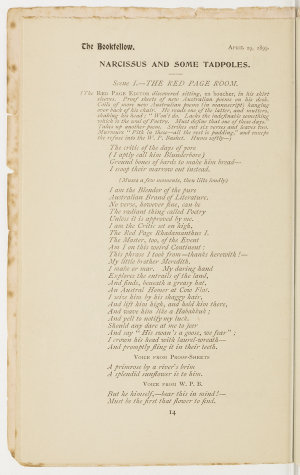 The Bookfellow.
APRIL 29, 1899.
NARCISSUS AND SOME TADPOLES.
Scene I.—THE RED PAGE ROOM.
(The RED PAGE EDITOR discovered sitting, en boucher, in his shirt
sleeves. Proof sheets of new Australian poems on his desk.
Coils of more new Australian poems (in manuscript) hanging
over back of his chair. He reads one of the latter, and mutters,
shaking his head: "Won't do. Lacks the indefinable something
which is the soul of Poetry. Must define that one of these days."
Takes up another poem. Strikes out six verses and leaves two.
Murmurs: "Pith in these—all the rest is padding," and sweeps
the refuse into the W. P. Basket. Hums softly—)
The critic of the days of yore
(I aptly call him Blunderbore)
Ground bones of bards to make him bread—
I swop their marrows out instead.
(Muses a few moments, then lilts loudly)
I am the Blender of the pure
Australian Brand of Literature.
No verse, however fine, can be
The radiant thing called Poetry
Unless it is approved by me.
I am the Critic set on high,
The Red Page Rhadamanthus I.
The Master, too, of the Event
Am I on this weird Continent:
This phrase I took from—thanks herewith!—
My little brother Meredith.
I make or mar. My daring hand
Explores the entrails of the land,
And finds, beneath a greasy hat,
An Austral Homer at Cow Flat.
I seize him by his shaggy hair,
And lift him high, and hold him there,
And wave him like a Habakkuk;
And yell to notify my luck.
Should any dare at me to jeer
And say "His swan's a goose, we fear":
I crown his head with laurel-wreath—
And promptly fling it in their teeth.
VOICE FROM PROOF-SHEETS
A primrose by a river's brim
A splendid sunflower is to him.
VOICE FROM W. P. B.
But he himself,—bear this in mind!—
Must be the first that flower to find.
14